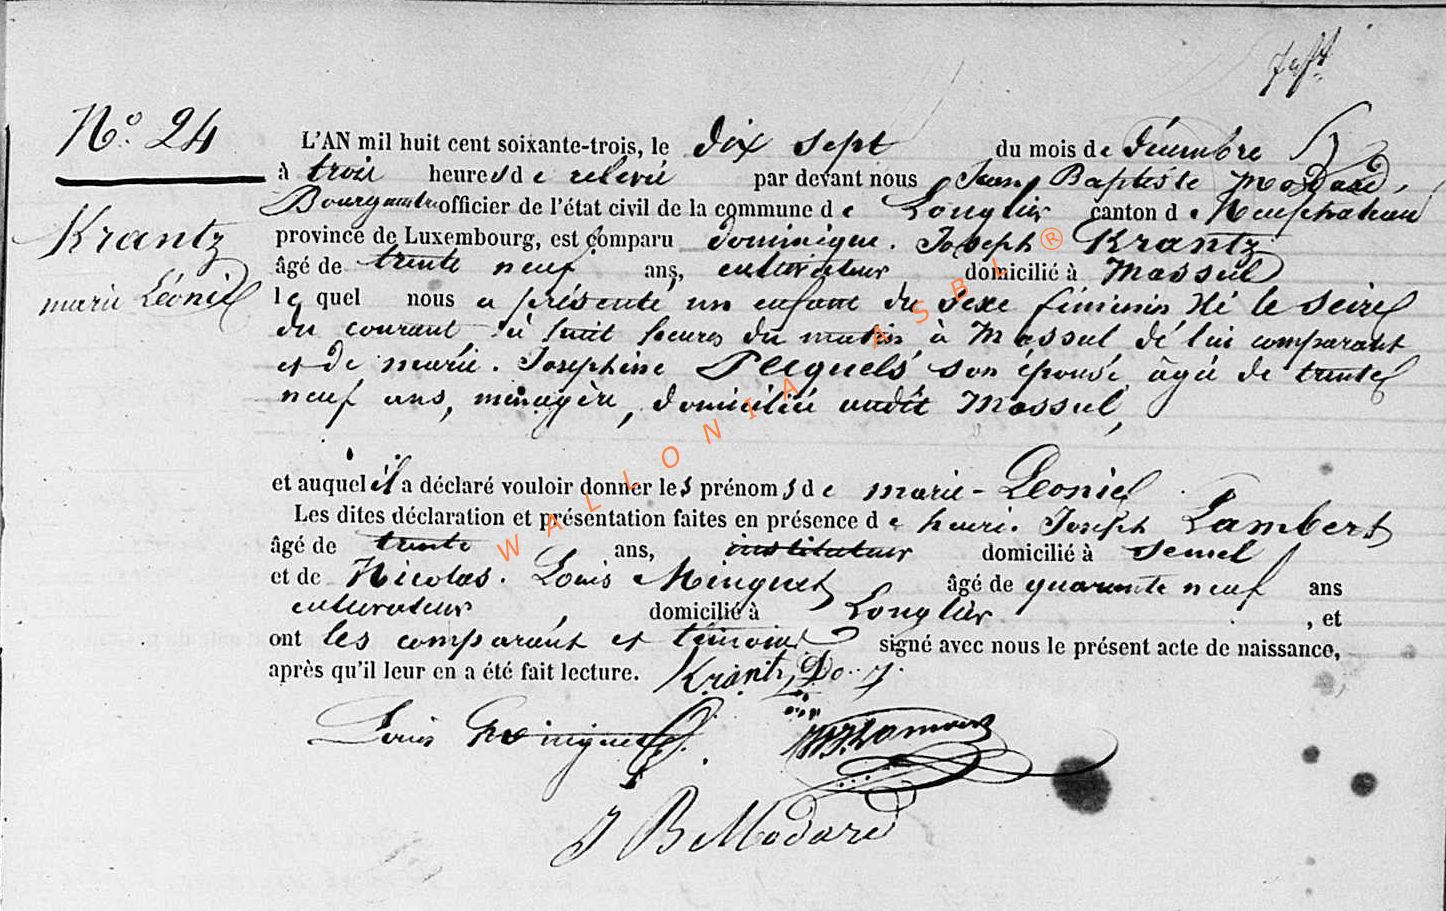 N.° 24
Krantz
marie Léonie
L'AN mil huit cent soixante-trois, le dix sept du mois de décembre
à trois heures de relevée par devant nous Jean Baptiste Modard,
Bourgmestre officier de l'état civil de la commune de Longlier canton de Neufchateau
province de Luxembourg, est comparu dominique. Joseph Krantz
âgé de trente neuf ans, cultivateur domicilié à Massul
lequel nous a présenté un enfant du sexe féminin né le seize
du courant à huit heures du matin à Massul de lui comparant
et de marie. Josephine son épouse âgée de trente
neuf ans, ménagère, domiciliée audit Massul,
et auquel il a déclaré vouloir donner les prénoms de marie-Leonie
Les dites déclaration et présentation faites en présence de henri. Joseph Lambert
âgé de trente ans, instituteur domicilié à Semel
et de Nicolas. Louis Minguet âgé de quarante neuf ans
cultivateur, domicilié à Longlier, et
ont les comparant et témoins signé avec nous le présent acte de naissance,
après qu'il leur en a été fait lecture. Krantz Do. j.
Louis Minguet
J B Modard
WALLONIA ASBL ®